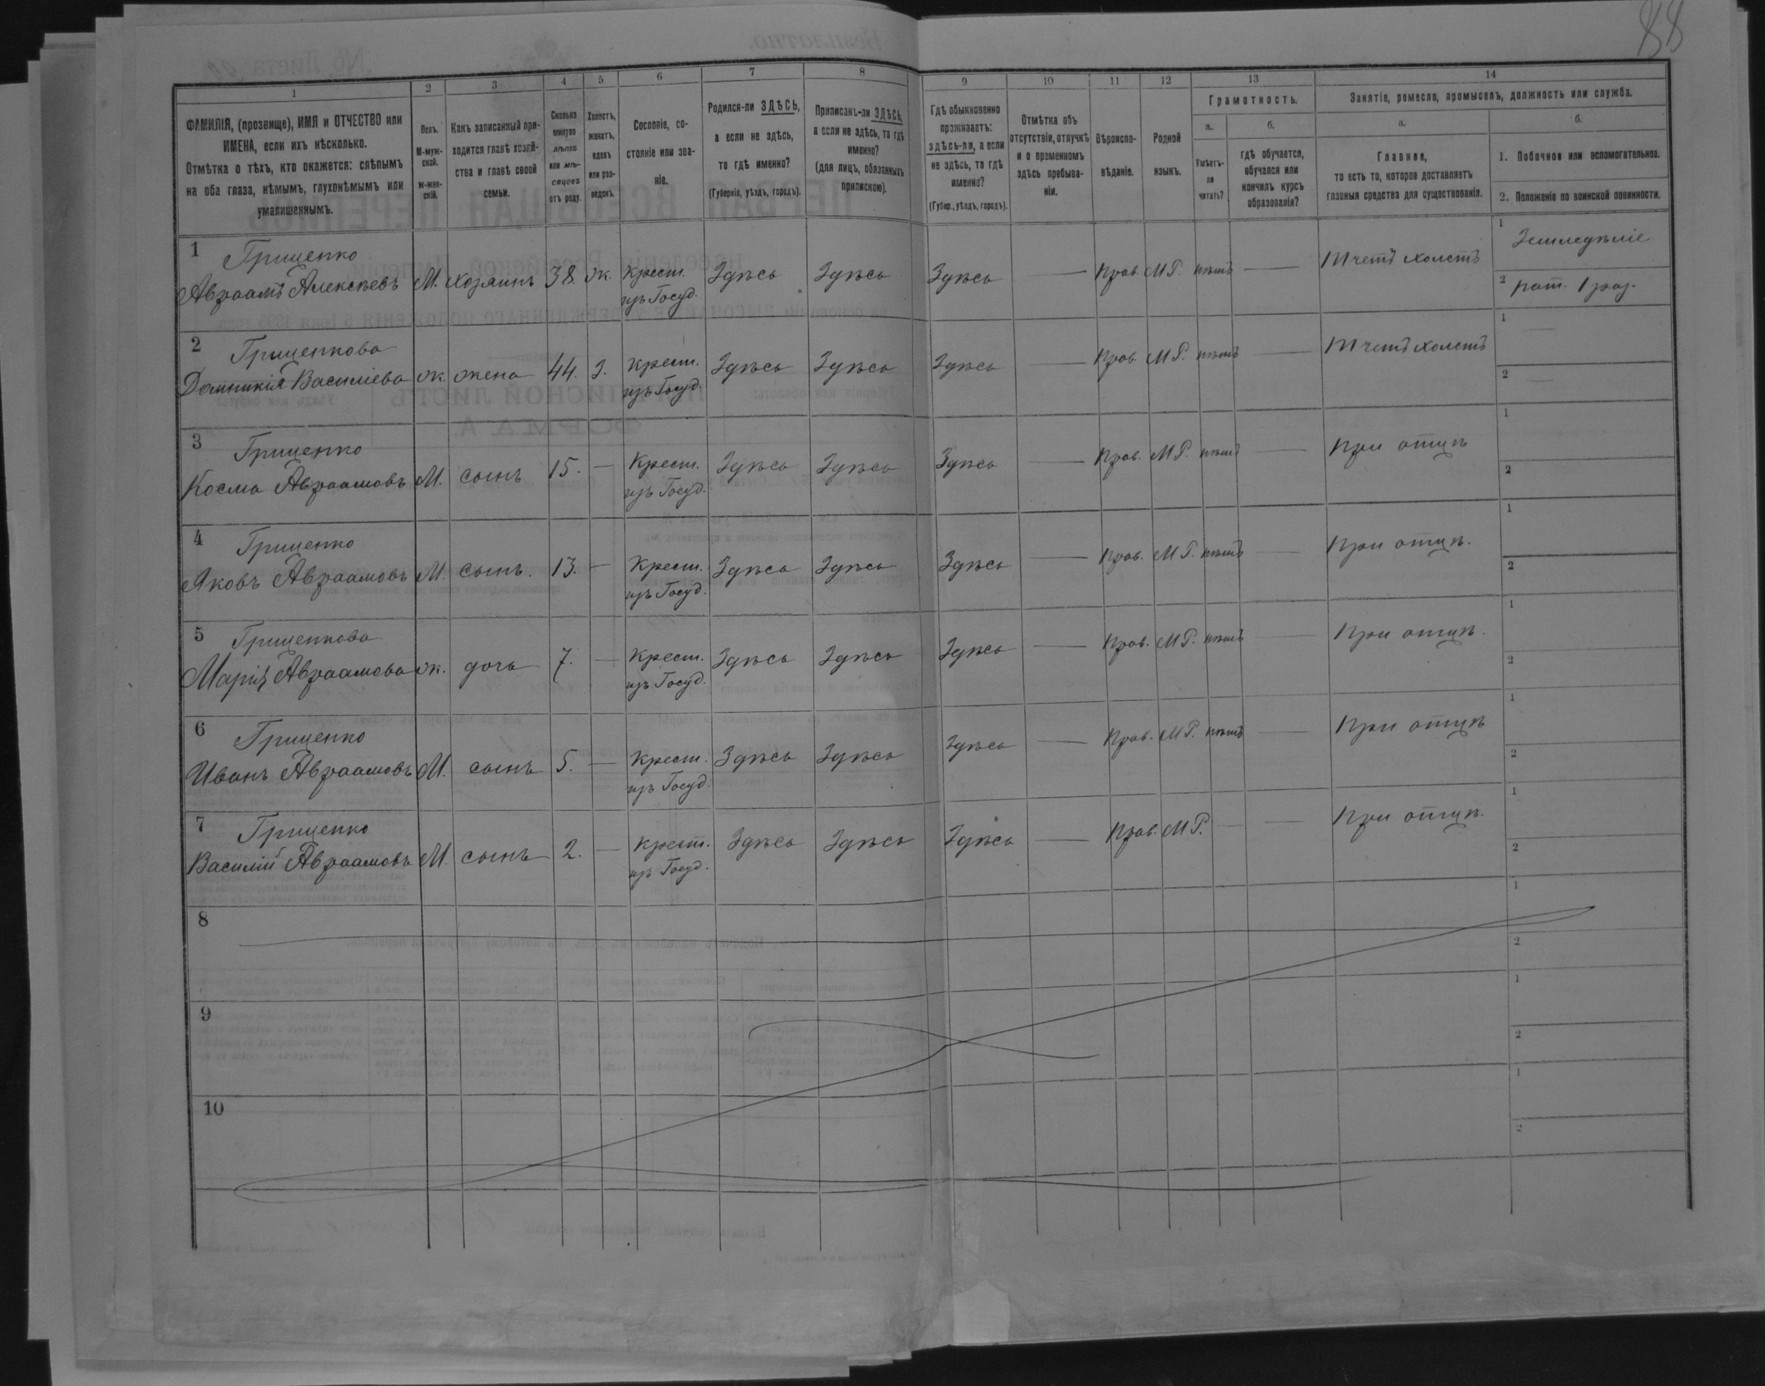 88
1 2 3 4 5 6 7 8 9 10 11 12 13 14
ФАМИЛІЯ, (прозвище), ИМЯ и ОТЧЕСТВО или
ИМЕНА, если ихъ нѣсколько.
Отмѣтка о тѣхъ, кто окажется: слѣпымъ
на оба глаза, нѣмымъ, глухонѣмымъ или
умалишеннымъ.
Полъ.
М-муж-
ской.
Ж-жен-
скій.
Какъ записанный при-
ходится главѣ хозяй-
ства и главѣ своей
семьи.
Сколько
минуло
лѣтъ
или мѣ-
сяцевъ
отъ роду.
Холостъ,
женатъ,
вдовъ
или раз-
веденъ.
Сословіе, со-
стояніе или зва-
ніе.
Родился-ли ЗДѢСЬ,
а если не здѣсь,
то гдѣ именно?
(Губернія, уѣздъ, городъ).
Приписанъ-ли ЗДѢСЬ,
а если не здѣсь, то гдѣ
именно?
(для лицъ, обязанныхъ
припискою).
Гдѣ обыкновенно
проживаетъ:
здѣсь-ли, а если
не здѣсь, то гдѣ
именно?
(Губер., уѣздъ, городъ).
Отмѣтка объ
отсутствіи, отлучкѣ
и о временномъ
здѣсь пребыва-
ніи.
Вѣроиспо-
вѣданіе.
Родной
языкъ.
Грамотность.
а. б.
Умѣетъ-
ли
читать?
гдѣ обучается,
обучался или
кончилъ курсъ
образованія?
Занятіе, ремесло, промыселъ, должность или служба.
а. б.
Главное,
то есть то, которое доставляетъ
главныя средства для существованія.
1. Побочное или вспомогательное.
2. Положеніе по воинской повинности.
1 Гриценко
Авраамъ Алексѣевъ М. хозяинъ 38. ж. Крест. изъ Госуд. Здѣсь Здѣсь Здѣсь — Прав. М.Р. нѣтъ — Ткчетъ холстъ 1 Земледѣліе
2 рат. 1 раз.
2 Гриценкова
Домникія Василіева ж. жена 44. З. Крест. изъ Госуд. Здѣсь Здѣсь Здѣсь — Прав. М.Р. нѣтъ — Ткчетъ холстъ 1 —
2 —
3 Гриценко
Косма Авраамовъ М. сынъ 15. — Крест. изъ Госуд. Здѣсь Здѣсь Здѣсь — Прав. М.Р. нѣтъ — При отцѣ 1
2
4 Гриценко
Яковъ Авраамовъ М. сынъ. 13. — Крест. изъ Госуд. Здѣсь Здѣсь Здѣсь — Прав. М.Р. нѣтъ — При отцѣ. 1
2
5 Гриценкова
Марія Авраамова ж. дочь 7. — Крест. изъ Госуд. Здѣсь Здѣсь Здѣсь — Прав. М.Р. нѣтъ — При отцѣ. 1
2
6 Гриценко
Иванъ Авраамовъ М. сынъ 5. — Крест. изъ Госуд. Здѣсь Здѣсь Здѣсь — Прав. М.Р. нѣтъ — При отцѣ 1
2
7 Гриценко
Василій Авраамовъ М. сынъ 2. — Крест. изъ Госуд. Здѣсь Здѣсь Здѣсь — Прав. М.Р. — — При отцѣ. 1
2
8 1
2
9 1
2
10 1
2